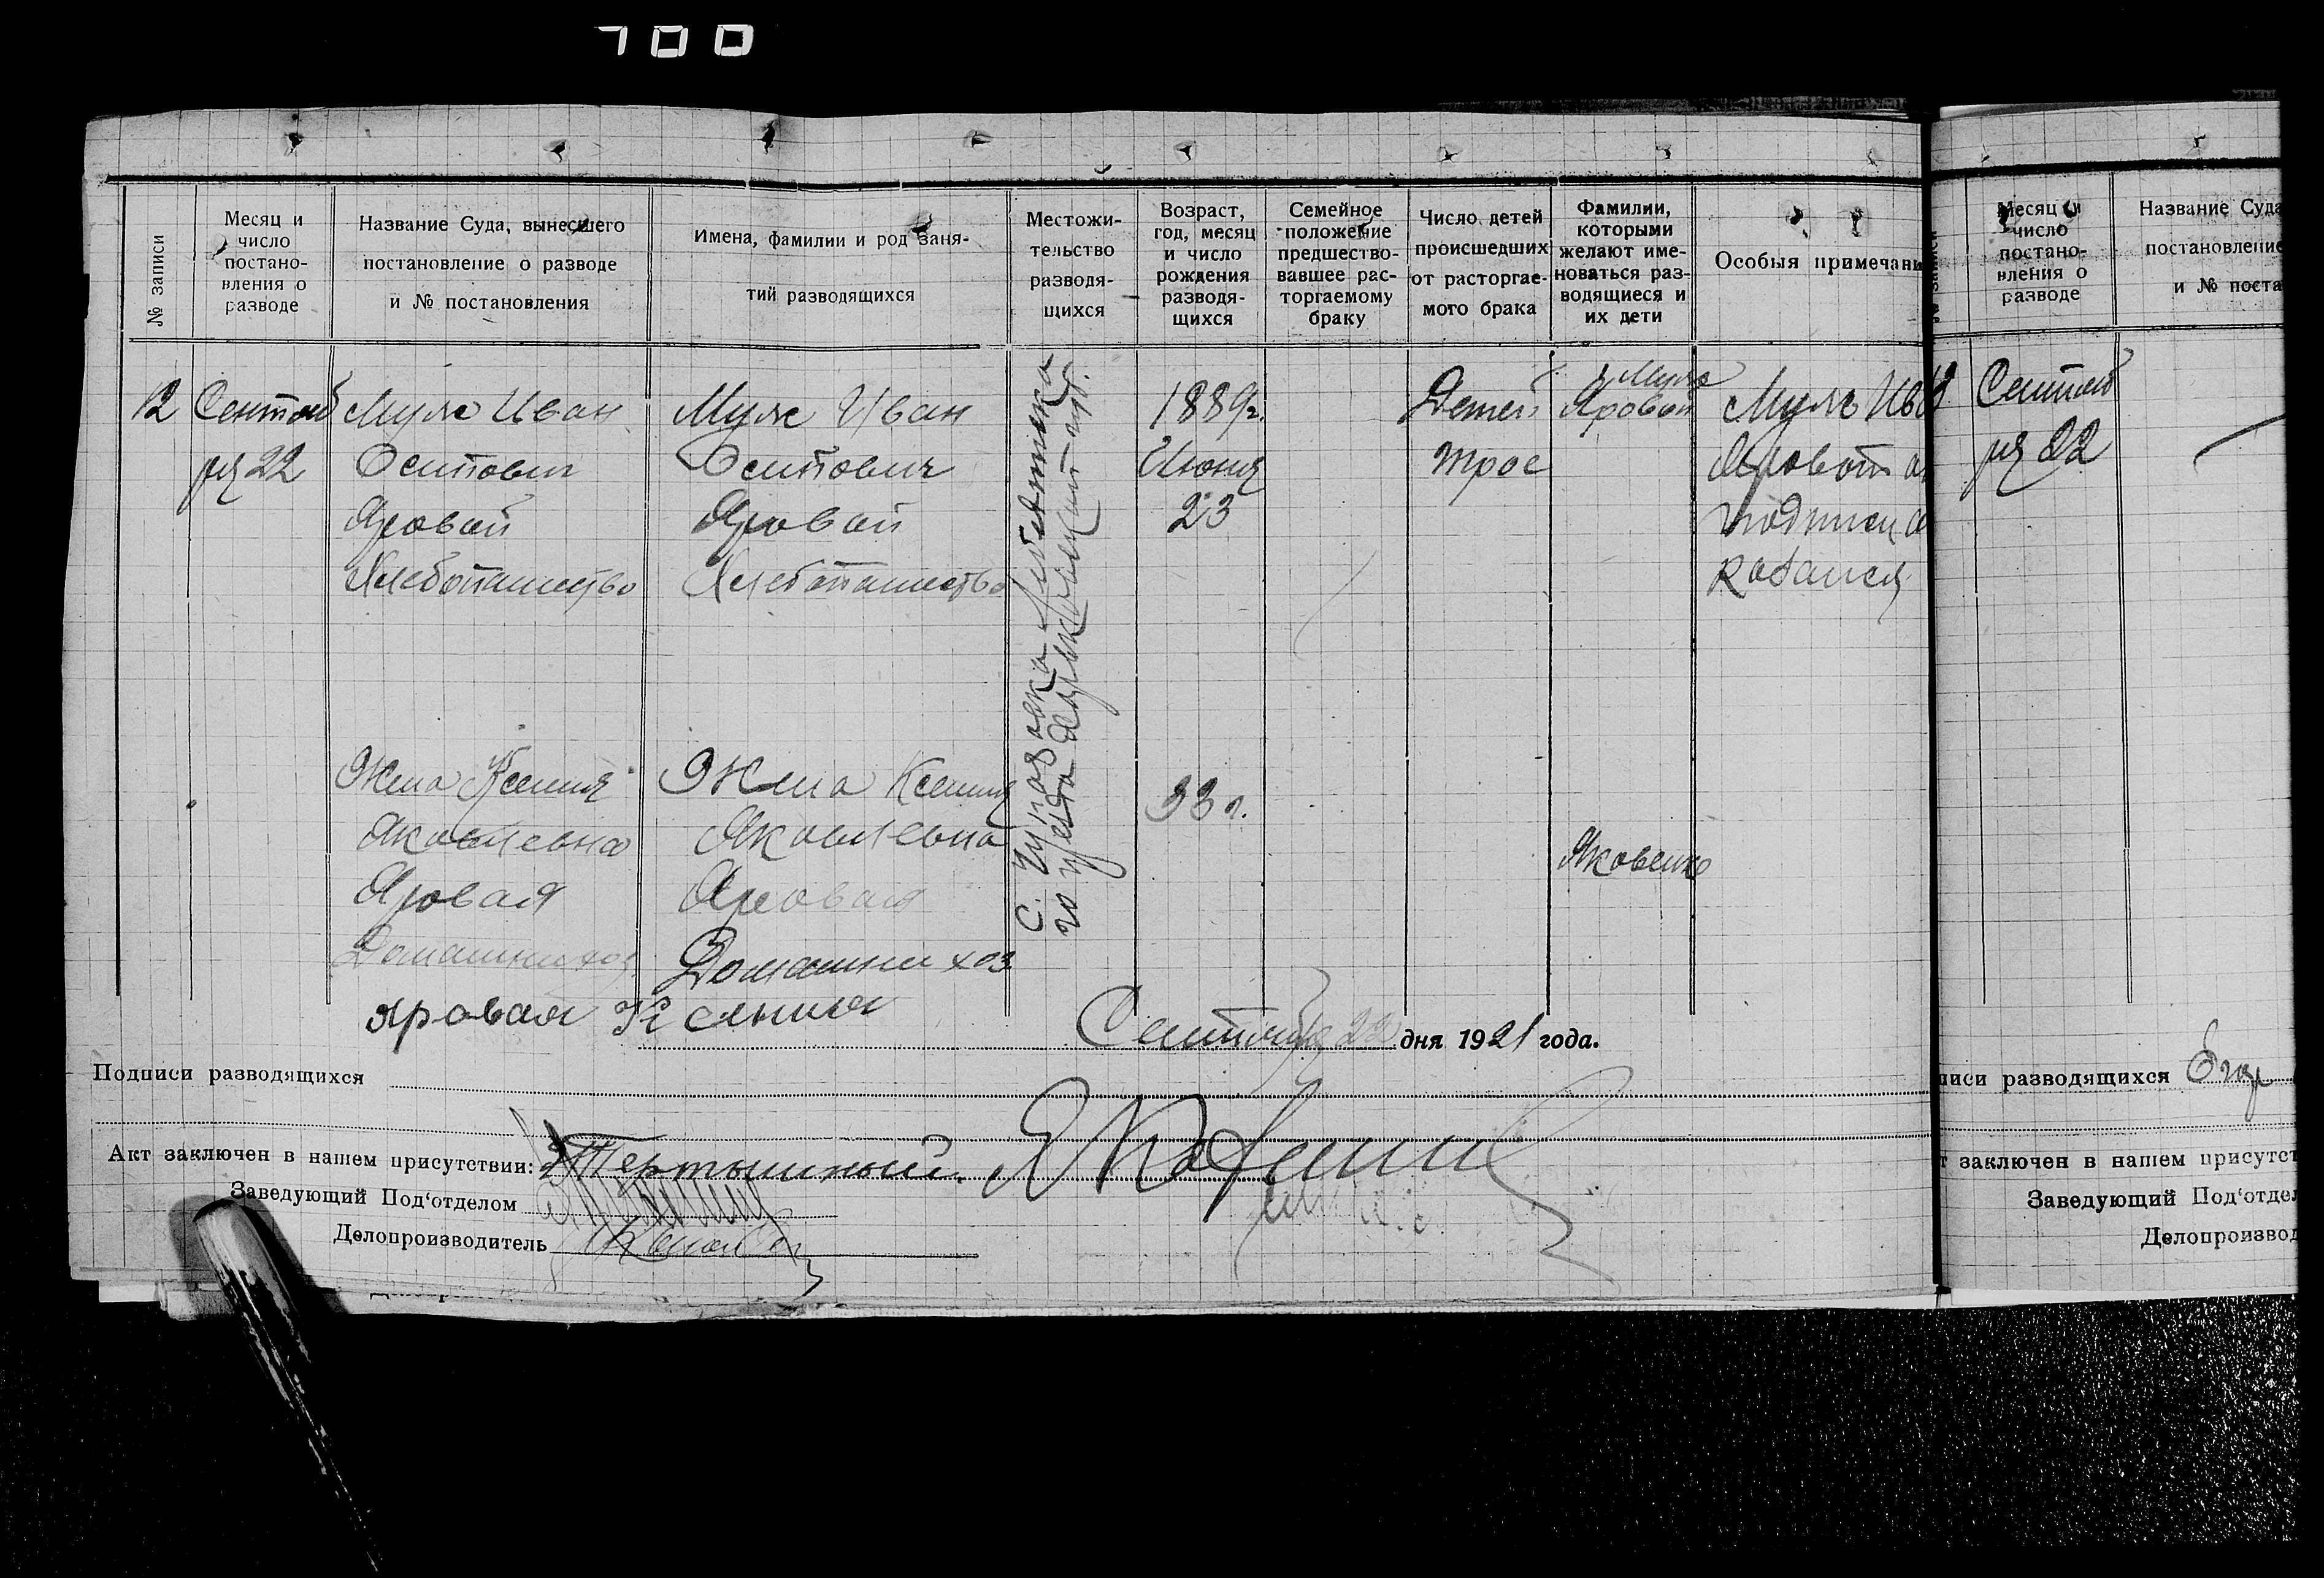 700
№ записи
Месяц и число постано- вления о разводе
Название Суда, вынесшего постановление о разводе и № постановления
Имена, фамилии и род заня- тий разводящихся
Местожи- тельство разводя- щихся
Возраст, год, месяц и число рождения разводя- щихся
Семейное положение предшество- вавшее рас- торгаемому браку
Число детей происшедших от расторгае- мого брака
Фамилии, которыми желают име- новаться раз- водящиеся и их дети
Особыя примечани
12
Сентяб
ря 22
Муж Иван
Осипович
Яровой
Хлебопашество
Жена Ксения
Яковлевна
Яровая
Домашни хоз
Муж Иван
Осипович
Яровой
Хлебопашество
Жена Ксения
Яковлевна
Яровая
Домашни хоз
с. Чуповка
го уезда Харьковской губ.
1889г.
Июня
23
33 г.
Детей
трое
Мужа
Яровой
Яковенко
Муж Ив
Яровой
подписи
Яровая Ксения
Сентября 22 дня 1921 года.
Подписи разводящихся
Акт заключен в нашем присутствии: Тертышный.
Заведующий Под'отделом
Делопроизводитель
№ записи
Месяц и число постано- вления о разводе
Название Суда
постановление
и № поста
Сентяб
ря 22
писи разводящихся
т заключен в нашем присутст
Заведующий Под'отдел
Делопроизвод